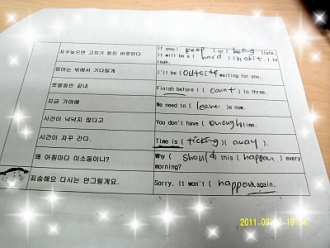 지우놓으면 고치기 힘든 버릇된다
If you ( keep ) ( being ) late,
it will be a ( hard ) ( habit ) to
break.
I'll be ( outside ) waiting for you.
끝내
Finish before I ( count ) to three.
지금 가야해
We need to ( leave ) to now.
시간이 넉넉지 않다고
You don't have ( enough ) time.
시간이 자꾸 간다.
Time is ( ticking ) ( away ).
왜 아침마다 이소동이니?
Why ( should ) this ( happen ) every
morning?
죄송해요 다시는 안그럴게요.
Sorry. It won't ( happen ) again.